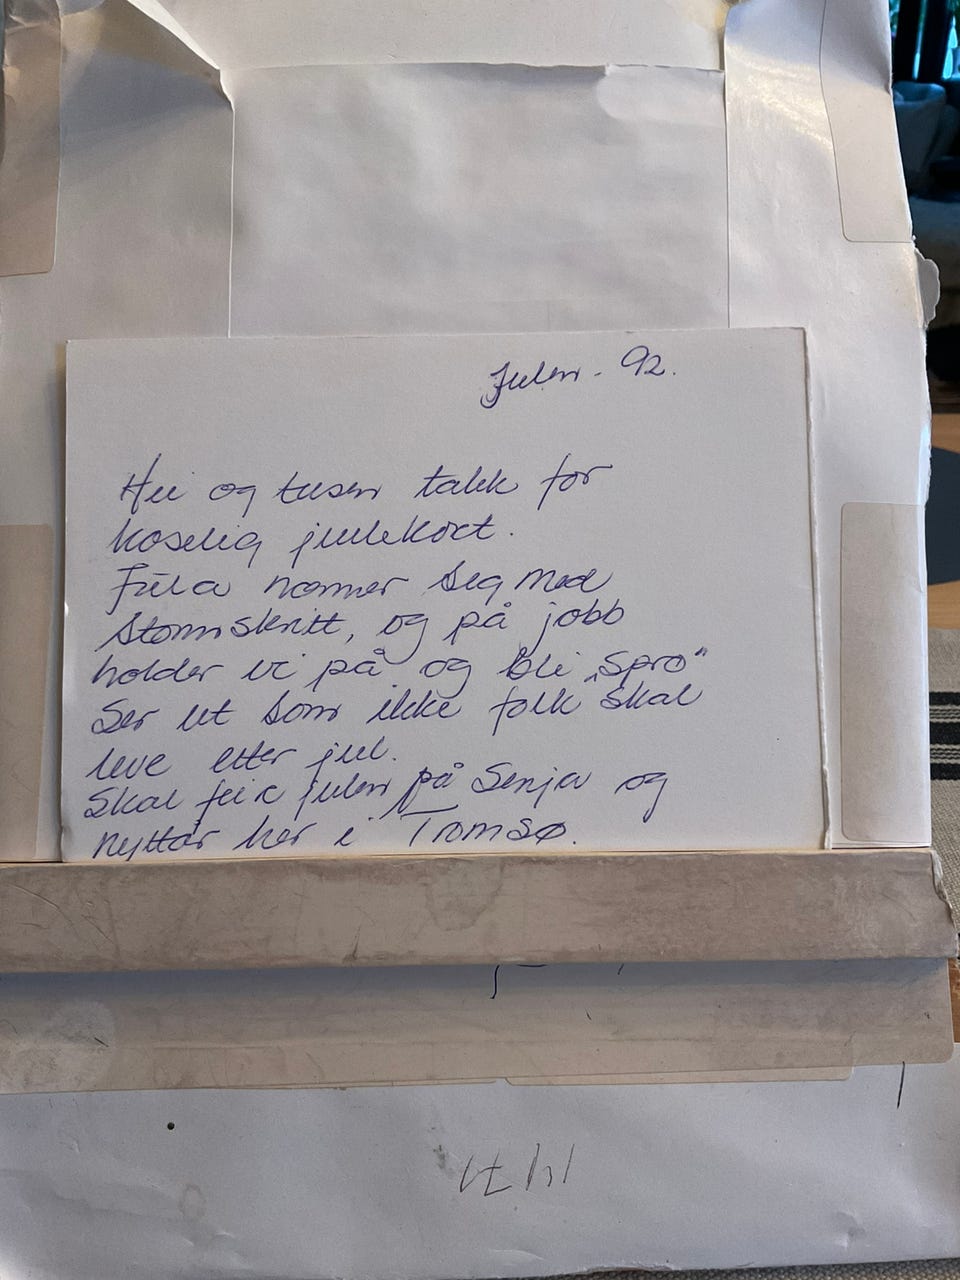 Julen - 92.
Hei og tusen takk for
koselig julekort.
Jula nærmer seg med
stormskritt, og på jobb
holder vi på og bli „sprø"
Ser ut som ikke folk skal
leve etter jul.
Skal feire julen på Senja og
nyttår her i Tromsø.